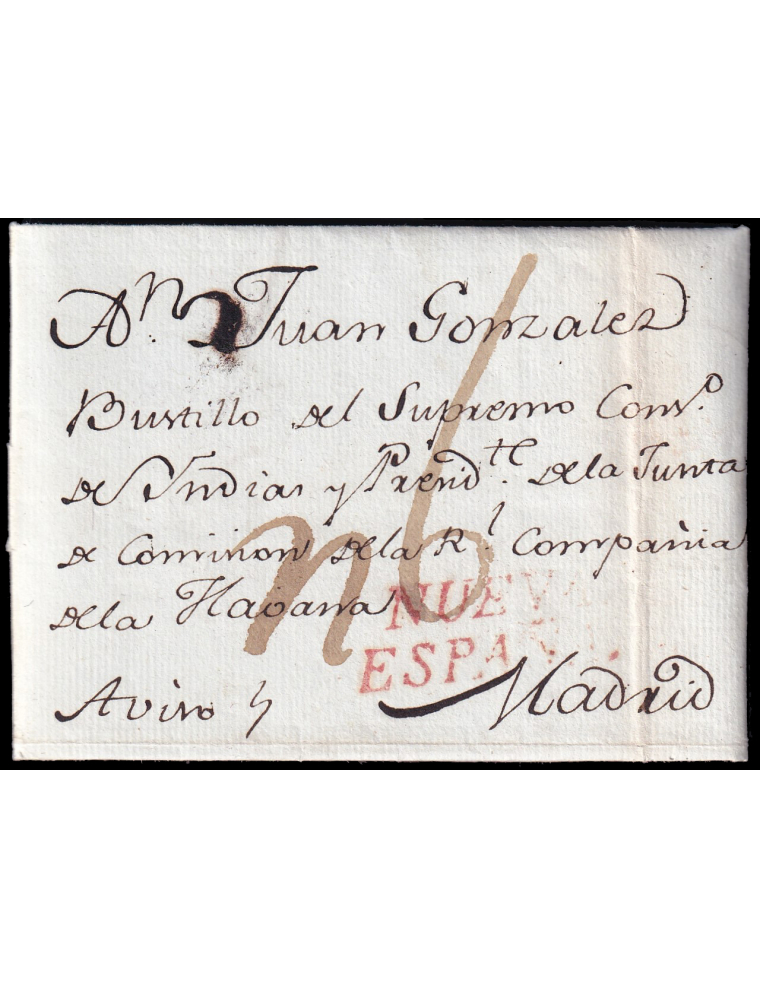 A Dn Juan Gonzalez
Bustillo del Supremo Consº.
de Yndias y Presidte. de la Junta
de Comision de la Rl. Compañia
de la Havana
n6
NUEVA
ESPAÑA
Aviso
Madrid